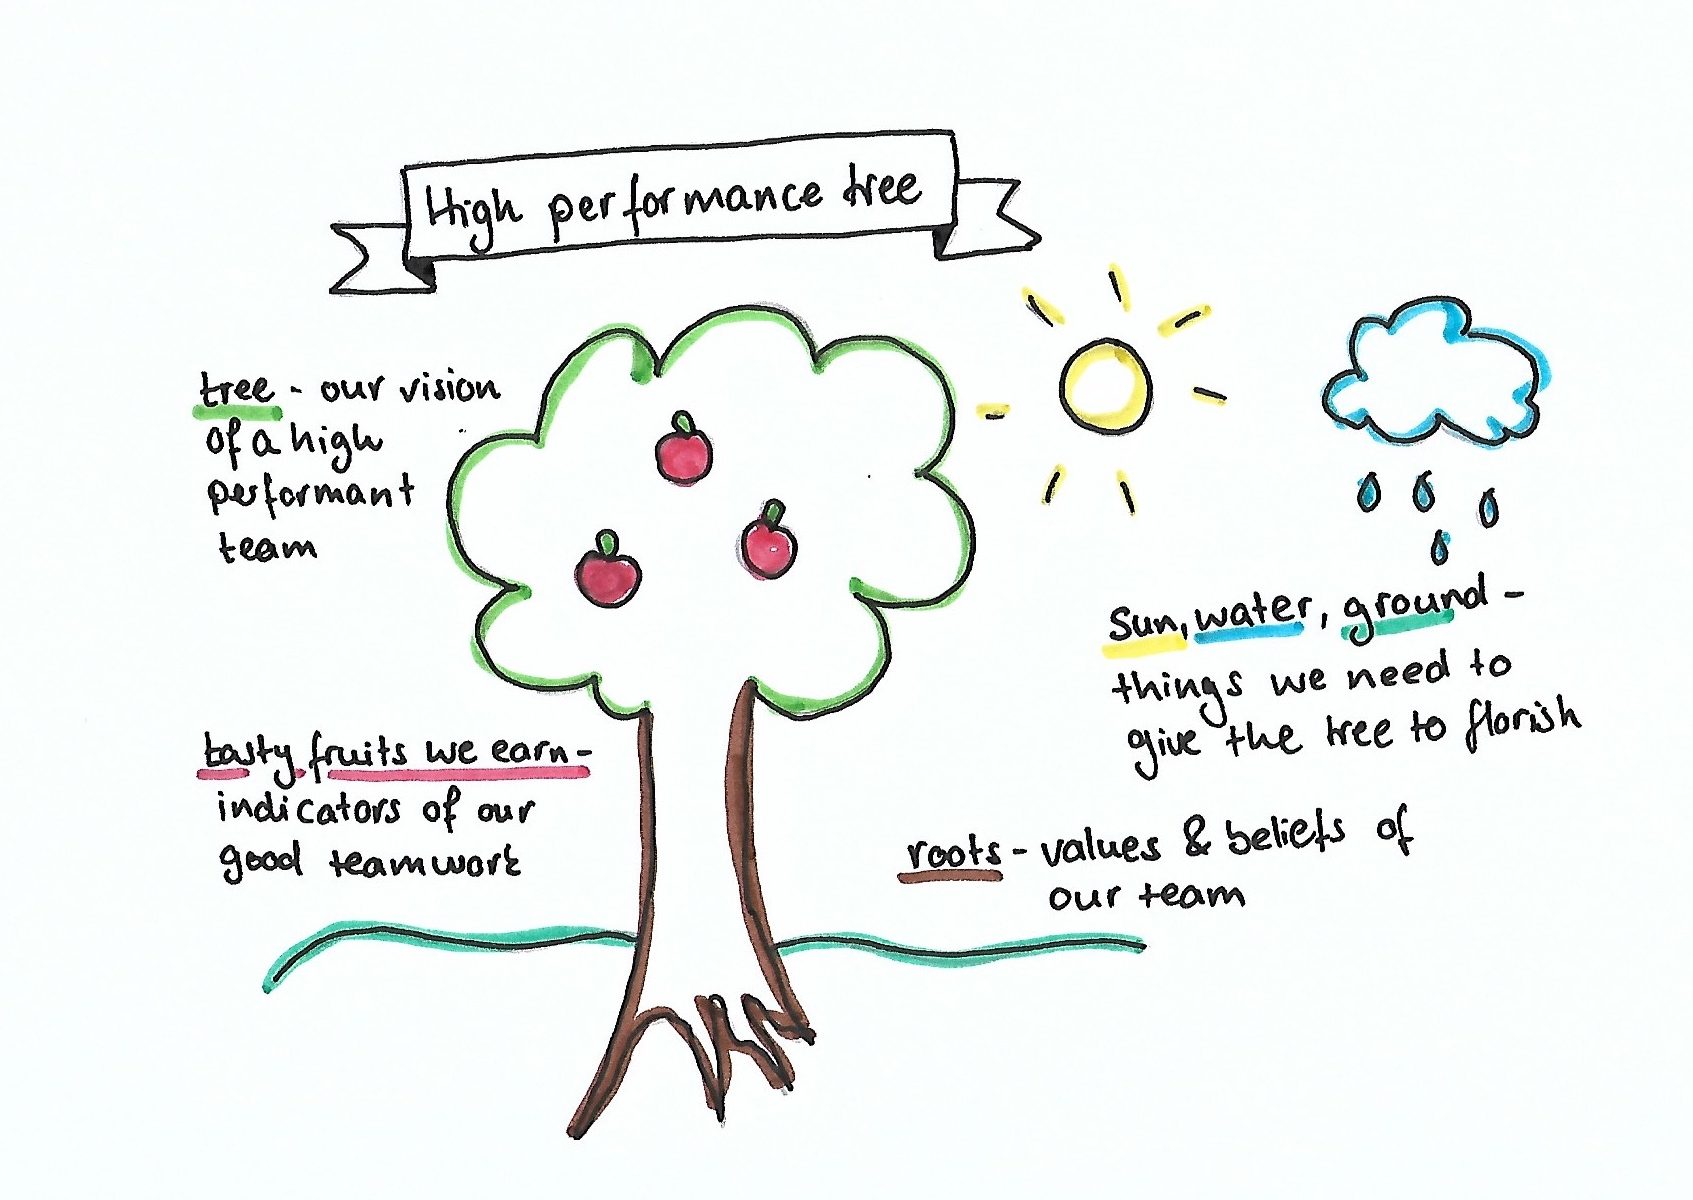 High performance tree
tree - our vision
of a high
performant
team
tasty fruits we earn -
indicators of our
good teamwork
Sun, water, ground -
things we need to
give the tree to florish
roots - values & beliefs of
our team